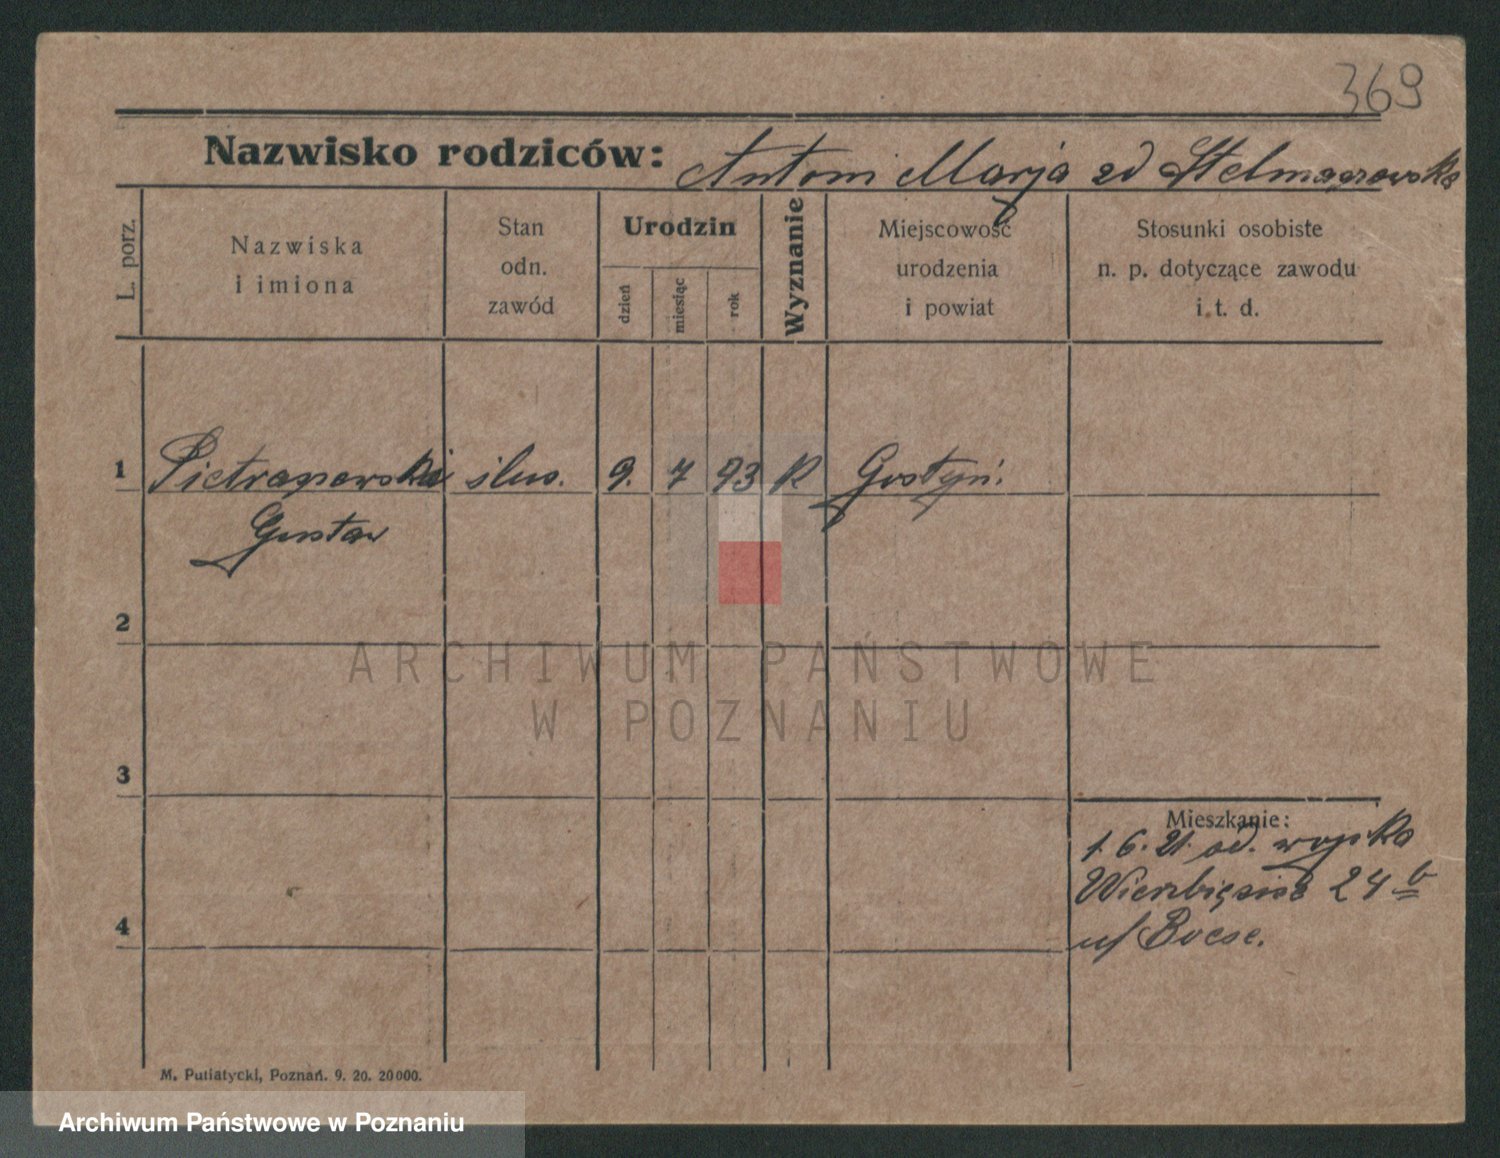 369
Nazwisko rodziców: Antoni Marja zd Stelmaszewska
L. porz.
Nazwiska
i imiona
Stan
odn.
zawód
Urodzin
dzień
miesiąc
rok
Wyznanie
Miejscowość
urodzenia
i powiat
Stosunki osobiste
n. p. dotyczące zawodu
i. t. d.
1 Pietraszewski ślus. 9. 7 93 R Gostyń.
Gustaw
2
ARCHIWUM PAŃSTWOWE
W POZNANIU
3
Mieszkanie:
1. 6. 21. od. wojska
Wierzbięcice 24 b
u/
4
M. Putiatycki, Poznań. 9. 20. 20000.
Archiwum Państwowe w Poznaniu